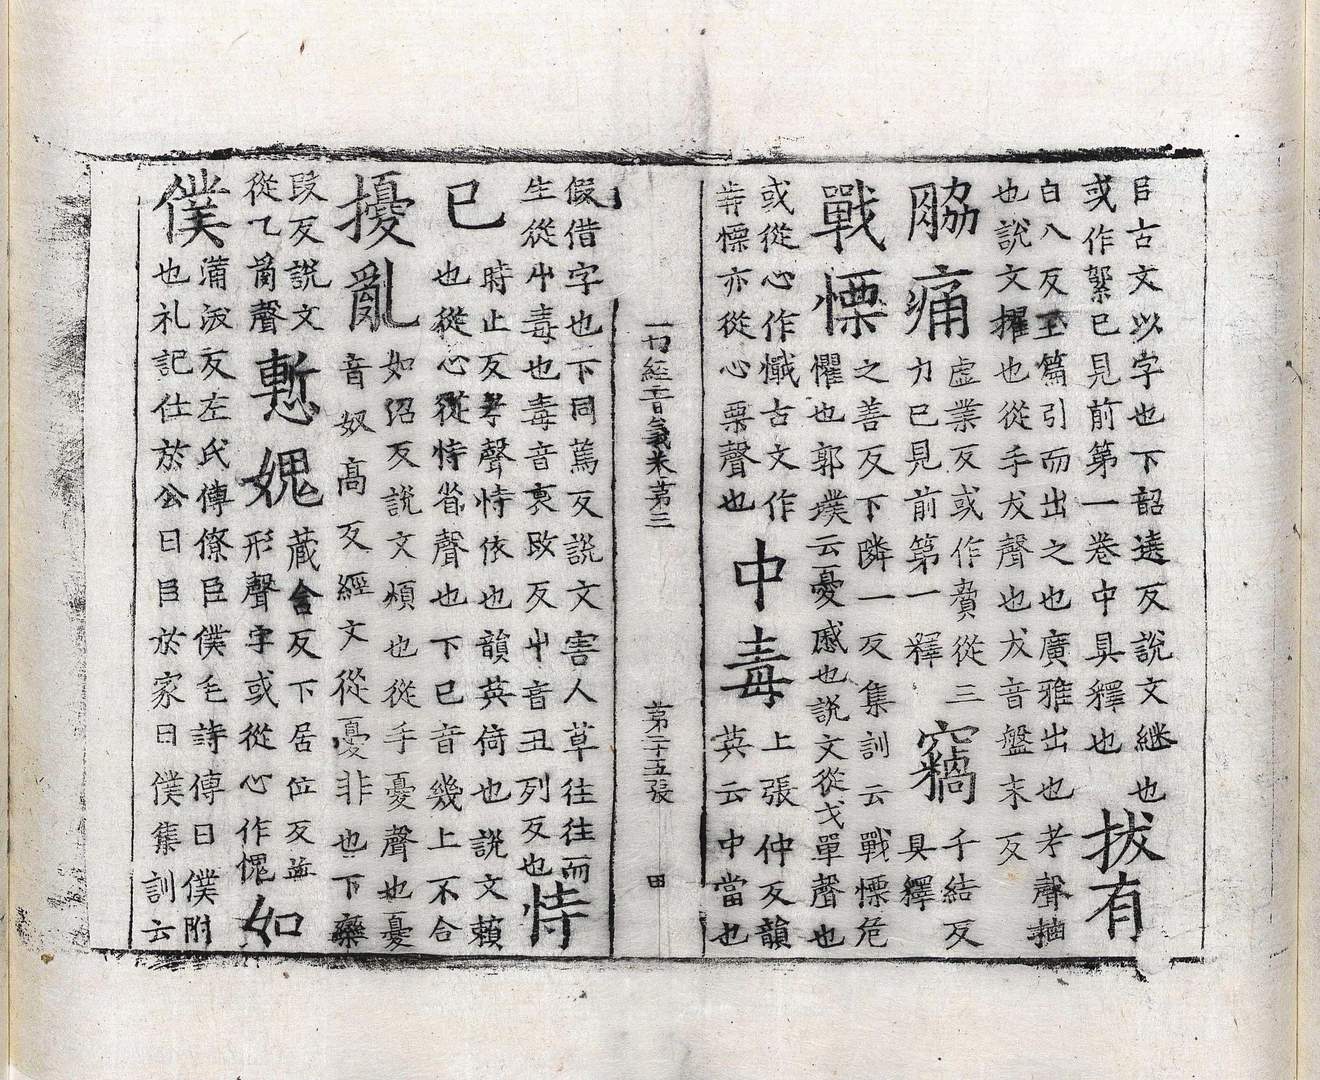 㠯古文以字也下韶遶反說文繼也
或作䋲已見前第一卷中具釋也
拔有
白八反玉篇引而出之也廣雅出也考聲抽
也說文擢也從手犮聲也犮音盤末反
脇痛
虛業反或作䝱從三
力已見前第一釋
竊
千結反
具釋
戰慄
之善反下隣一反集訓云戰慄危
懼也郭璞云憂慼也說文從戈單聲也
或從心作懺古文作
𠧪慄亦從心栗聲也
中毒
上張仲反韻
英云中當也
一切經音義卷第三
第三十五張
田
假借字也下同蔦反說文害人草往往而
生從屮毒也毒音裒改反屮音丑列反也
恃
已
時止反考聲恃依也韻英倚也說文賴
也從心從恃省聲也下已音幾上不合
擾亂
如沼反說文煩也從手憂聲也憂
音奴高反經文從憂非也下藥
段反說文
從乙𤔔聲
慙媿
藏含反下居位反並
形聲字或從心作愧
如
僕
蒲沒反左氏傳僚臣僕毛詩傳曰僕附
也礼記仕於公曰臣於家曰僕集訓云